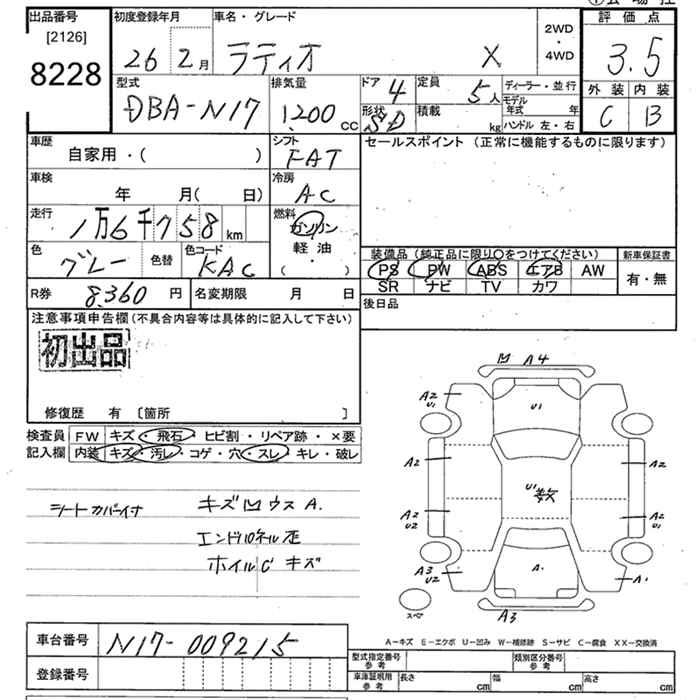 出品番号 [2126] 8228
初度登録年月 26 2月
車名・グレード ラティオ X
2WD・4WD
評価点 3.5
外装 内装
C B
型式 DBA-N17
排気量 1200 CC
ドア 4
形状 SD
定員 5人
積載 kg
ディーラー・並行
モデル年式 年
ハンドル 左・右
車歴 自家用・( )
シフト FAT
セールスポイント (正常に機能するものに限ります)
車検 年 月( 日)
冷房 AC
走行 1万6千758km
燃料 ガソリン 軽油 ( ・ )
色 グレー 色替
色コード KAC
装備品 (純正品に限り〇をつけてください)
新車保証書
PS PW ABS エアB AW
有・無
SR ナビ TV カワ
R券 8360 円
名変期限 月 日
後日品
注意事項申告欄(不具合内容等は具体的に記入して下さい)
初出品
修復歴 有 [箇所 ]
検査員 FW キズ・飛石・ヒビ割・リペア跡・×要
記入欄 内装 キズ・汚レ・コゲ・穴・スレ・キレ・破レ
シートカバーイナ キズ凹ウス A.
ホイルC キズ
凹 A4
A2 U1
U1
A2 A2
U1 数
A2 U2
A2 U1
A3 U2
A.
A1
スペア
A3
A-キズ E-エクボ U-凹み W-補修跡 S-サビ C-腐食 XX-交換済
車台番号 N17-009215
登録番号
型式指定番号 参考
類別区分番号 参考
車庫証明用 参考 長さ cm 幅 cm 高さ cm